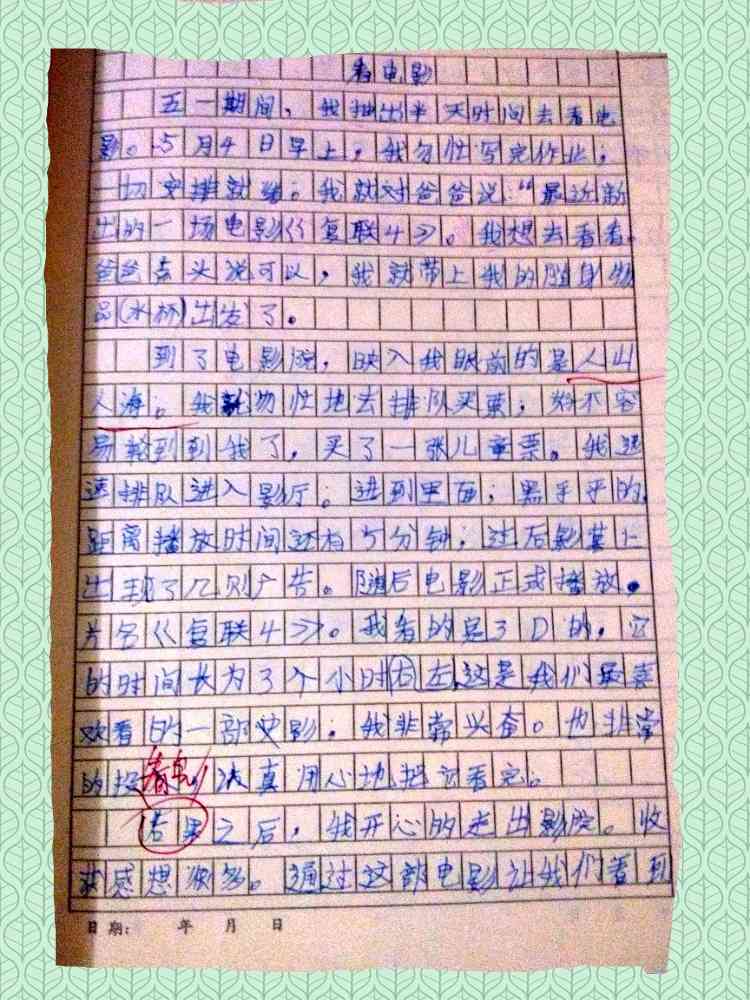 看电影
五一期间，我抽出半天时间去看电
影。5月4日早上，我匆忙写完作业，
一切安排就绪。我就对爸爸说："最近新
出的一场电影《复联4》。我想去看看。
爸爸点头说可以，我就带上我的随身物
品(水杯)出发了。
到了电影院，映入我眼前的是人山
人海。我就匆忙地去排队买票，好不容
易轮到到我了，买了一张儿童票。我迅
速排队进入影厅。进到里面，黑乎乎的
距离播放时间还有5分钟，过后影幕上
出现了几则广告。随后电影正式播放。
片名《复联4》。我看的是3D的，它
的时间长为3个小时右左，这是我们最喜
欢看的一部电影，我非常兴奋。也非常
的投 认真用心地把它看完。
看 之后，我开心的走出影院。收
获感想很多。通过这部电影让我们看到
日期： 年 月 日